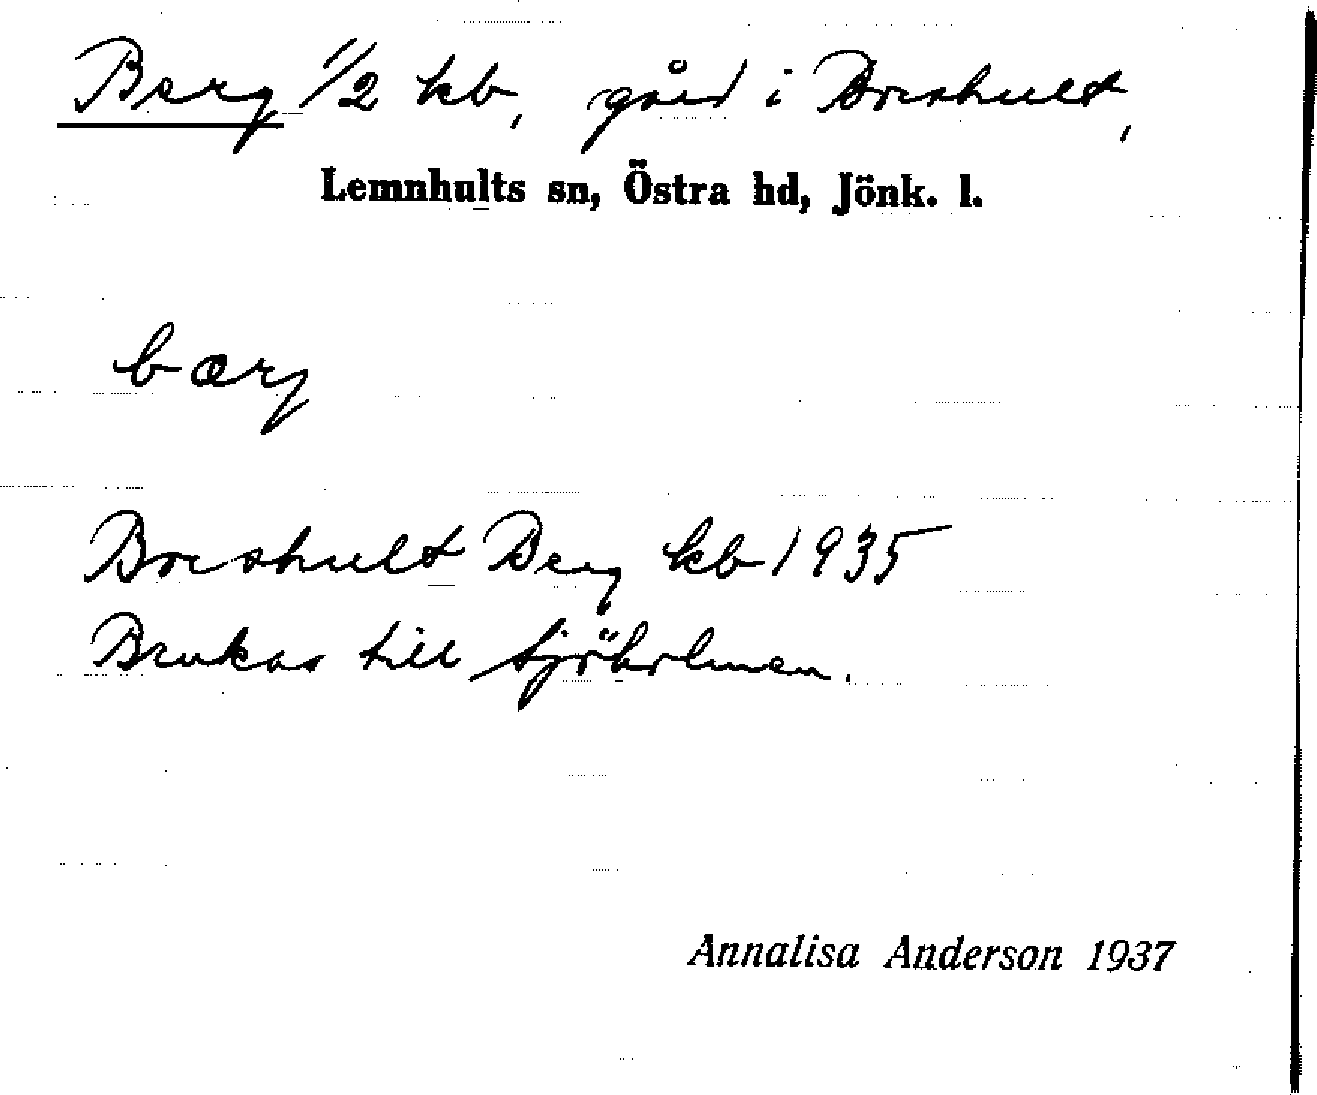 Berg 1/2 kb, gård i Boeshult,
Lemnhults sn, Östra hd, Jönk. l.
bærj
Boeshult Berg kb 1935
Brukas till Sjöholmen.
Annalisa Anderson 1937